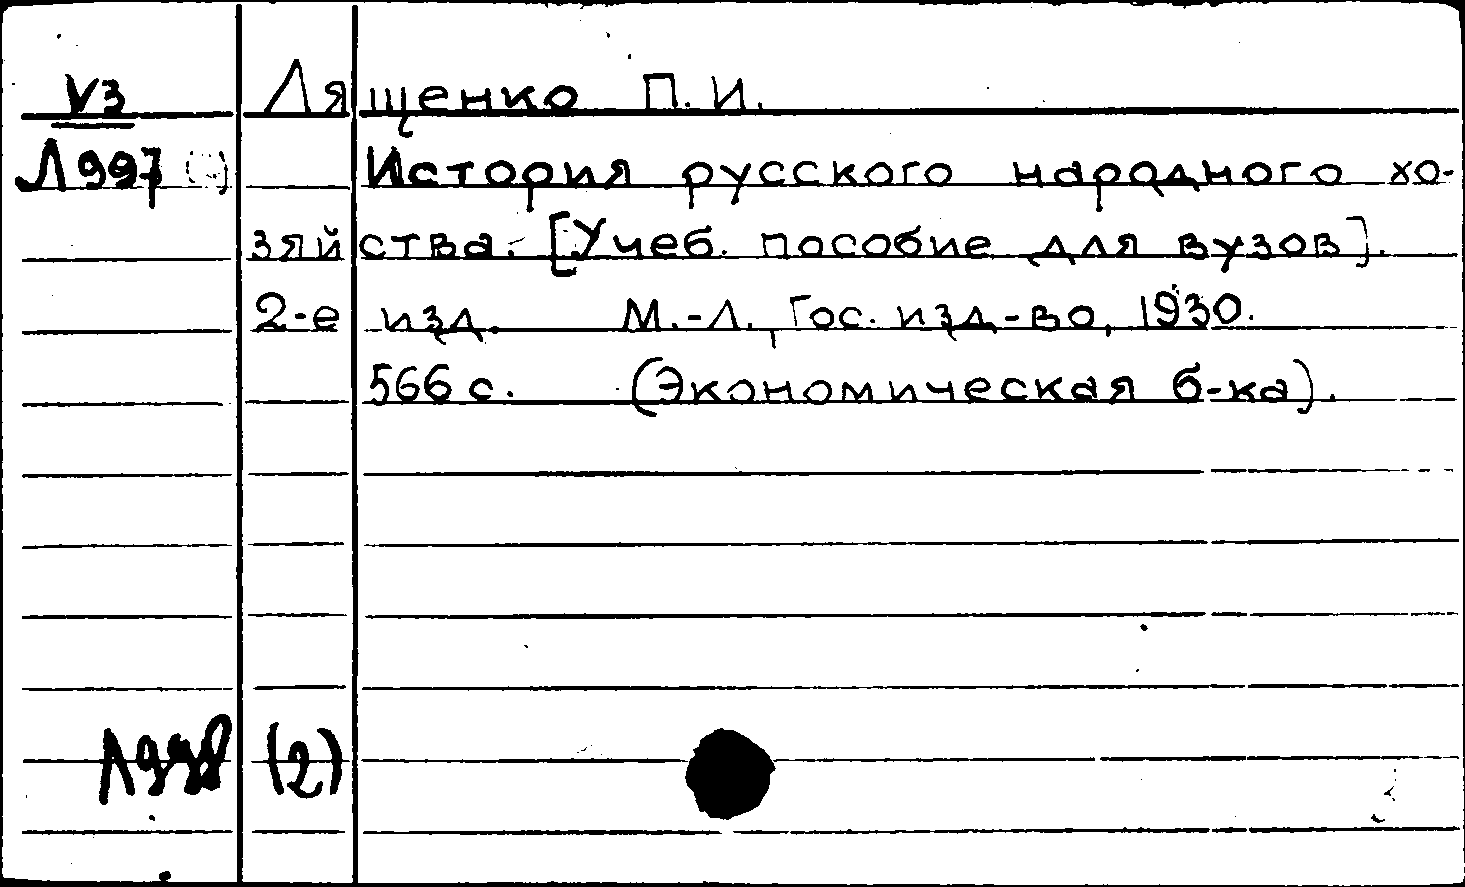 V3 Лященко П. И.
Л997 История русского народного хо-
зяйства. [Учеб. пособие для вузов].
2-е изд. М.-Л., Гос. изд-во, 1930.
566 с. (Экономическая б-ка).
(2)